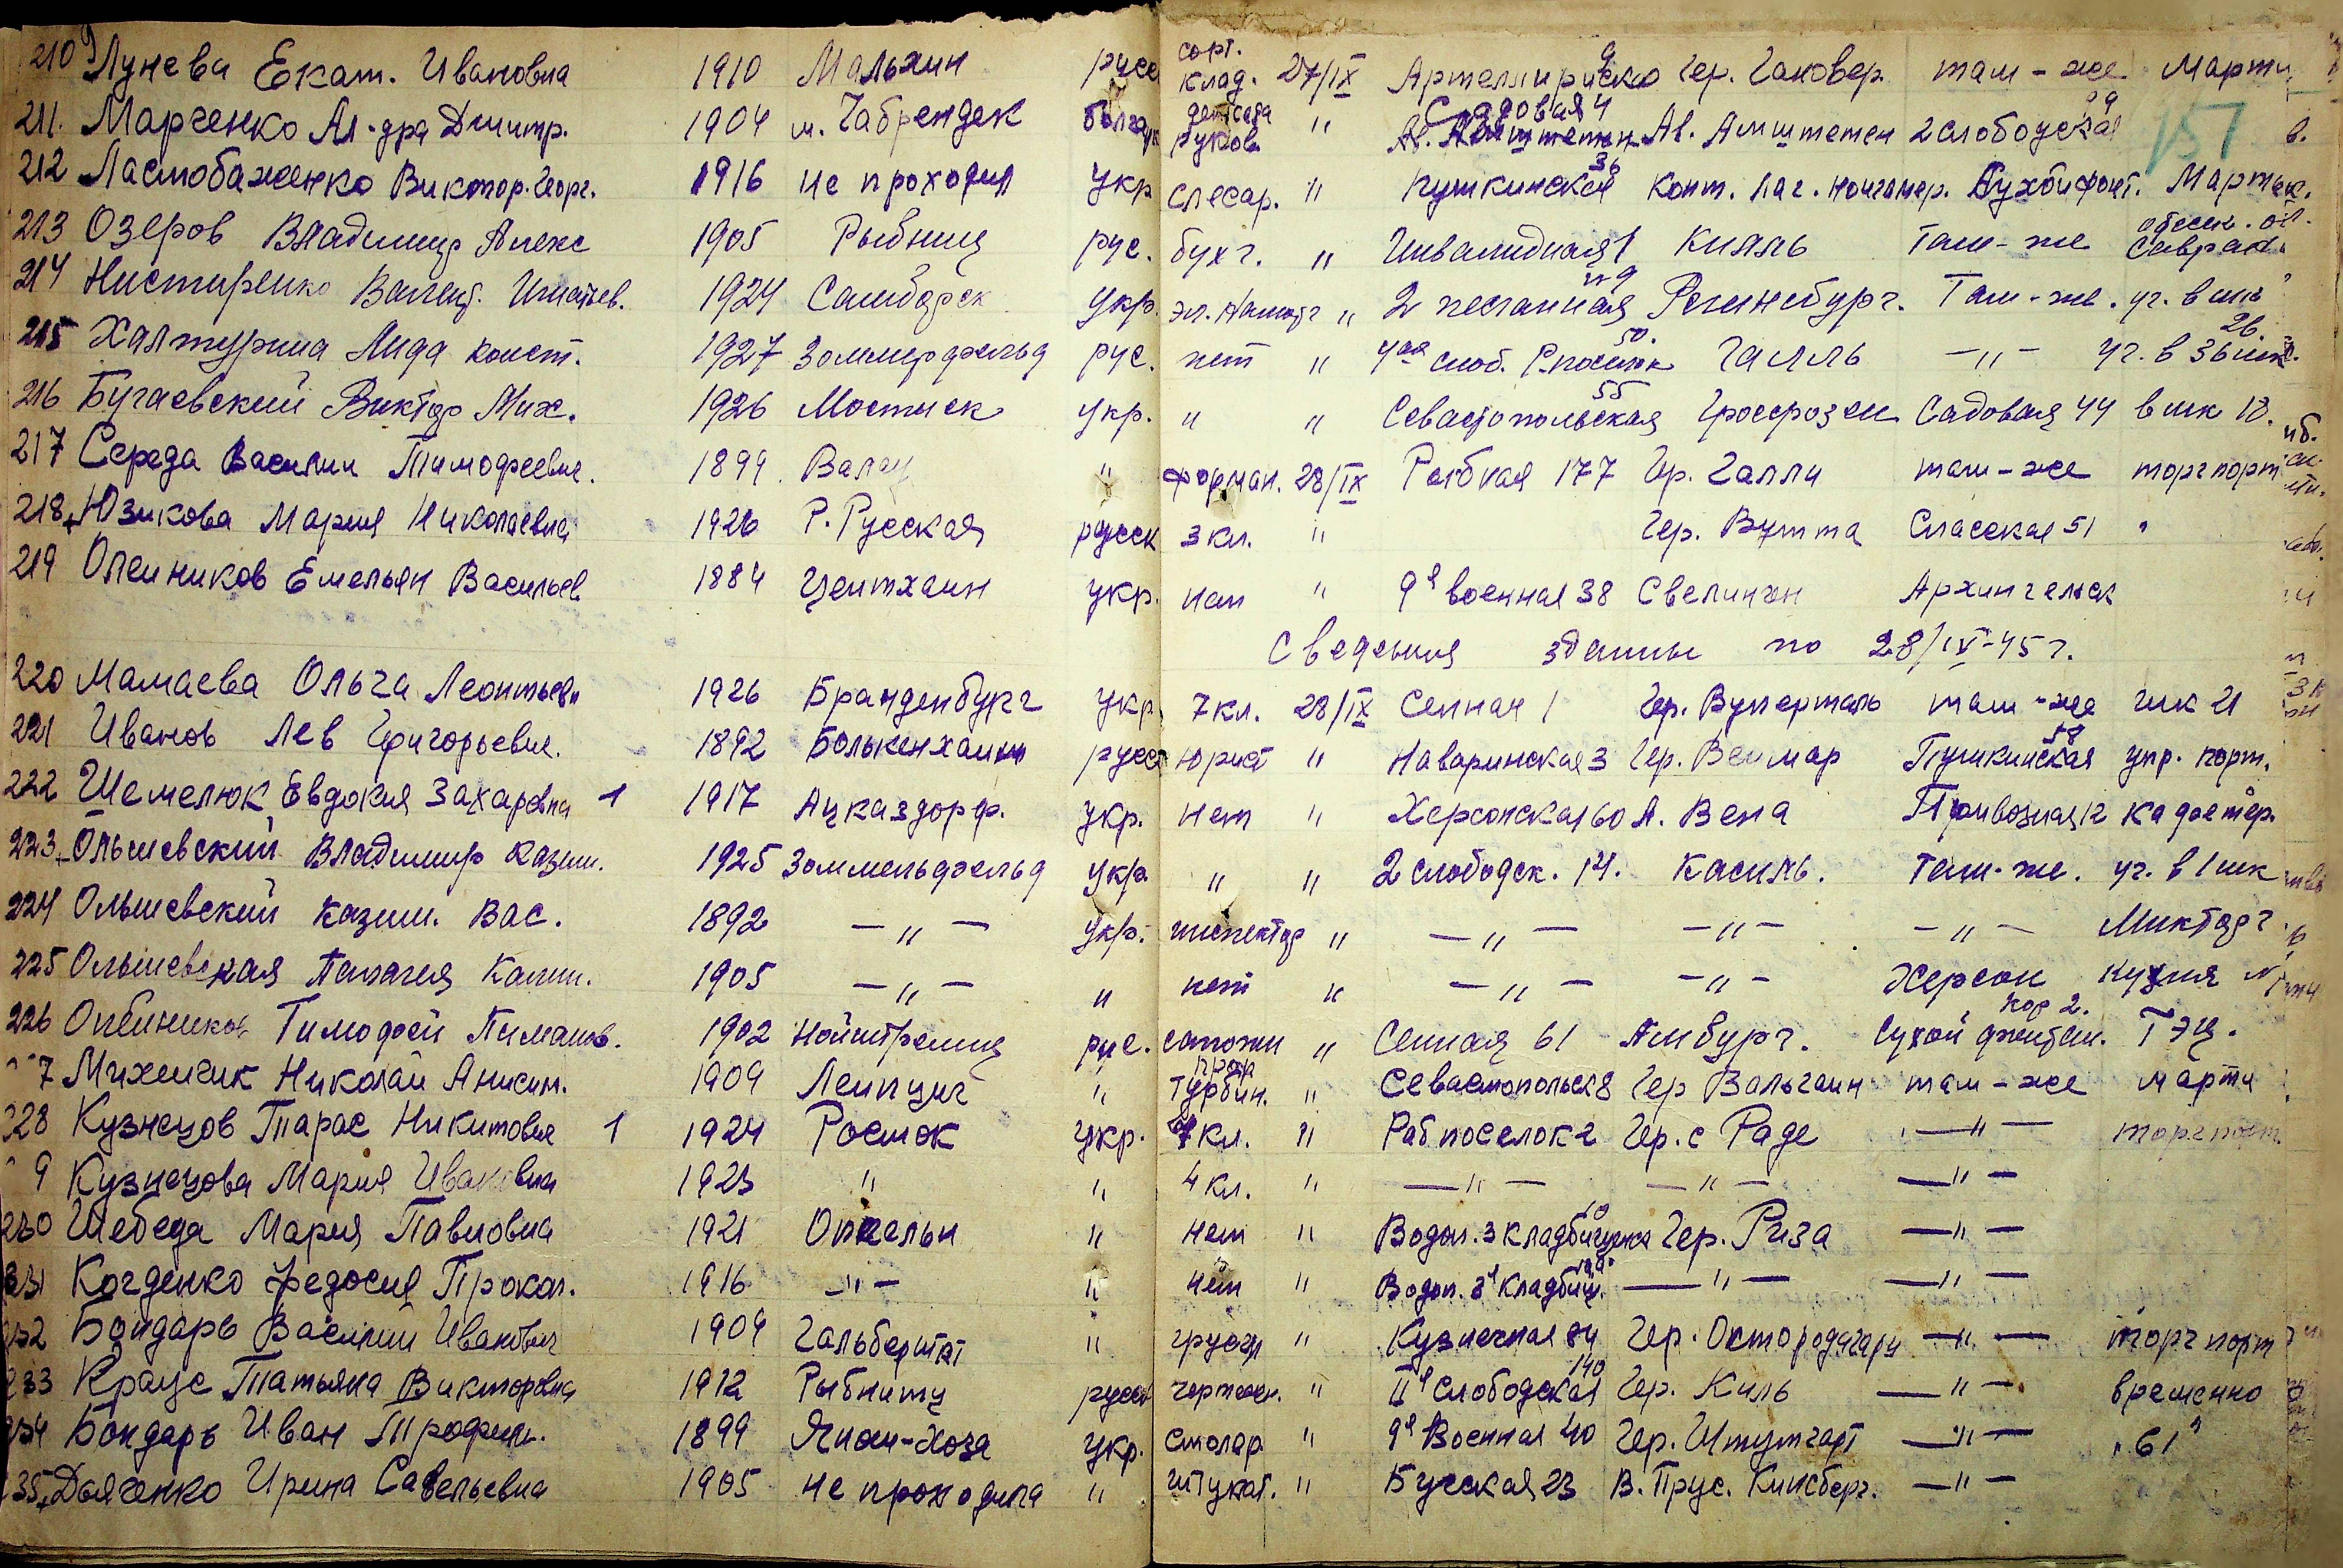 210 Лунева Екат. Ивановна 1910 Мальхин русс сорт. клад. 27/IX Артеллирийско 9 Гер. Гановер. там - же Марти
211. Марченко Ал-дра Дмитр. 1904 м. Габрендек болгар детсада руков " Садовая 4 Ав. Амштетен Ав. Амштетен 2 слободская 99
212 Ластобаженко Виктор. Георг. 1916 не проходил укр слесар. " Пушкинская 36 Конт. лаг. Марти
213 Озеров Владимир Алекс 1905 Рыбниц рус. бухг. " Инвалидная 1 Киль Там - же
214 Нистиренко Валент. Игнатьев. 1924 Самбарск укр. эл. " 2 песчанная №9 Регинсбург. Там - же. уч. в шк
215 Халтурина Лида Конст. 1927 Зоммерфельд рус. нет " 4ая слоб. 50. Галль - " - уч. в 36 шк. 26.
216 Бугаевский Виктор Мих. 1926 Мостиск укр. " " Севастопольская 55 Гросрозен Садовая 44 в шк 18.
217 Середа Василий Тимофеевич. 1899. " форман. 28/IX Рыбная 177 Гр. Галли там - же торг порт
218 Юзикова Мария Николаевна 1926 Р. Русская русск 3 кл. " Гер. Вутта Спасская 51 "
219 Олейников Емельян Васильев 1884 Цейтхаин укр. " 9я военная 38 Свелинген Архингельск
Сведения зданны по 28/IX-45 г.
220 Мамаева Ольга Леонтьевн 1926 Бранденбург укр 7 кл. 28/IX Сенная 1 Гер. Вуперталь там - же шк 21
221 Иванов Лев Григорьевич. 1892 Болькенхайн русс юрист " Наваринская 3 Гер. Веймар Пушкинская 58 упр. порт.
222 Шемелюк Евдокия Захаровна 1 1917 Ацказдорф. укр. нет " Херсонская 160 А. Вена Привозная 12
223 Ольшевский Владимир Казим. 1925 Зоммельдфельд укр. " " 2 слободск. 14. Касиль. Там - же. уч. в 1 шк
224 Ольшевский Казим. Вас. 1892 - " - укр. инспектор " - " - - " - - " -
225 Ольшевская Пелагея Калин. 1905 - " - " нет " - " - - " - Херсон кухня №
226 Олейников Тимофей Пиманов. 1902 Нойштрелиц рус. сапожн " Сенная 61 Амбург. Сухой фонтан. кор 2. Тэц.
7 Михейчик Николай Анисим. 1909 Лейпциг " Турбин. " Севастопольск 8 Гер Вальгаин там - же марти
228 Кузнецов Тарас Никитович 1 1924 Росток укр. 7 кл. " Раб поселок 2 Гер. с Раде - " - торг порт
9 Кузнецова Мария Ивановна 1923 " " 4 кл. " - " - - " - - " -
230 Шебеда Мария Павловна 1921 Оппельн " нет " Водоп. 3 кладбищенск 10 Гер. Риза - " -
231 Когденко Федосия Прокоп. 1916 - " - " нет " Водоп. 3я кладбищ. - " - - " -
232 Бондарь Василий Иванович 1909 Гальберштат " грузч " Кузнечная 84 Гер. - " - торг порт
233 Краус Татьяна Викторовна 1912 Рыбницу русск чертежн. " IIя слободская 140 Гер. Киль - " - временно
234 Бондарь Иван Трофим. 1899 Ягнам-Хоза укр. столяр " 9я Военная 40 Гер. Штутгарт - " - "61"
35 Дьяченко Ирина Савельевна 1905 не проходила " штукат. " Бугская 23 В. Прус. Кинсберг. - " -